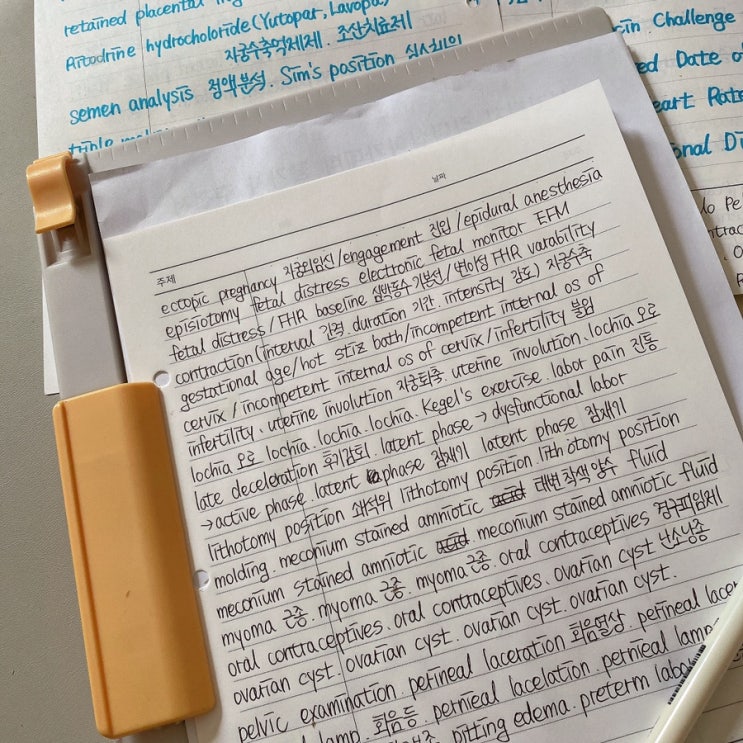 retained placental
Ritodrine hydrocholoride (Yutopar, Lavopa)
자궁수축억제제. 조산치료제
semen analysis 정액분석. Sim's position 심스체위
in Challenge
ed Date o
eart Rate
onal Di
날짜
주제
ectopic pregnancy 자궁외임신/engagement 진입/epidural anesthesia
episiotomy fetal distress electronic fetal monitor EFM
fetal distress/FHR baseline 심박동수 기본선/변이성 FHR varability
contraction(interval 간격. duration 기간. intensity 강도) 자궁수축
gestational age/hot stiz bath/incompetent internal os of
cervix/incompetent internal os of cervix/infertility 불임
infertility. uterine involution 자궁퇴축. uterine involution. lochia 오로
lochia 오로 lochia. lochia. lochia. Kegel's exercise. labor pain 진통
late deceleration 후기감퇴. latent phase → dysfunctional labor
→ active phase. latent phase 잠재기 latent phase 잠재기
lithotomy position 쇄석위 lithotomy position. lithotomy position
molding. meconium stained amniotic 태변착색양수 fluid
meconium stained amniotic. meconium stained amniotic fluid
myoma 근종. myoma 근종. myoma 근종. oral contraceptives 경구피임제
oral contraceptives. oral contraceptives. ovarian cyst 난소낭종
ovarian cyst. ovarian cyst. ovarian cyst. ovarian cyst.
pelvic examination. perineal laceration 회음열상. perineal lacer
lamp. 회음등. pernieal lacelation. pernieal lamp
pitting edema. preterm labo